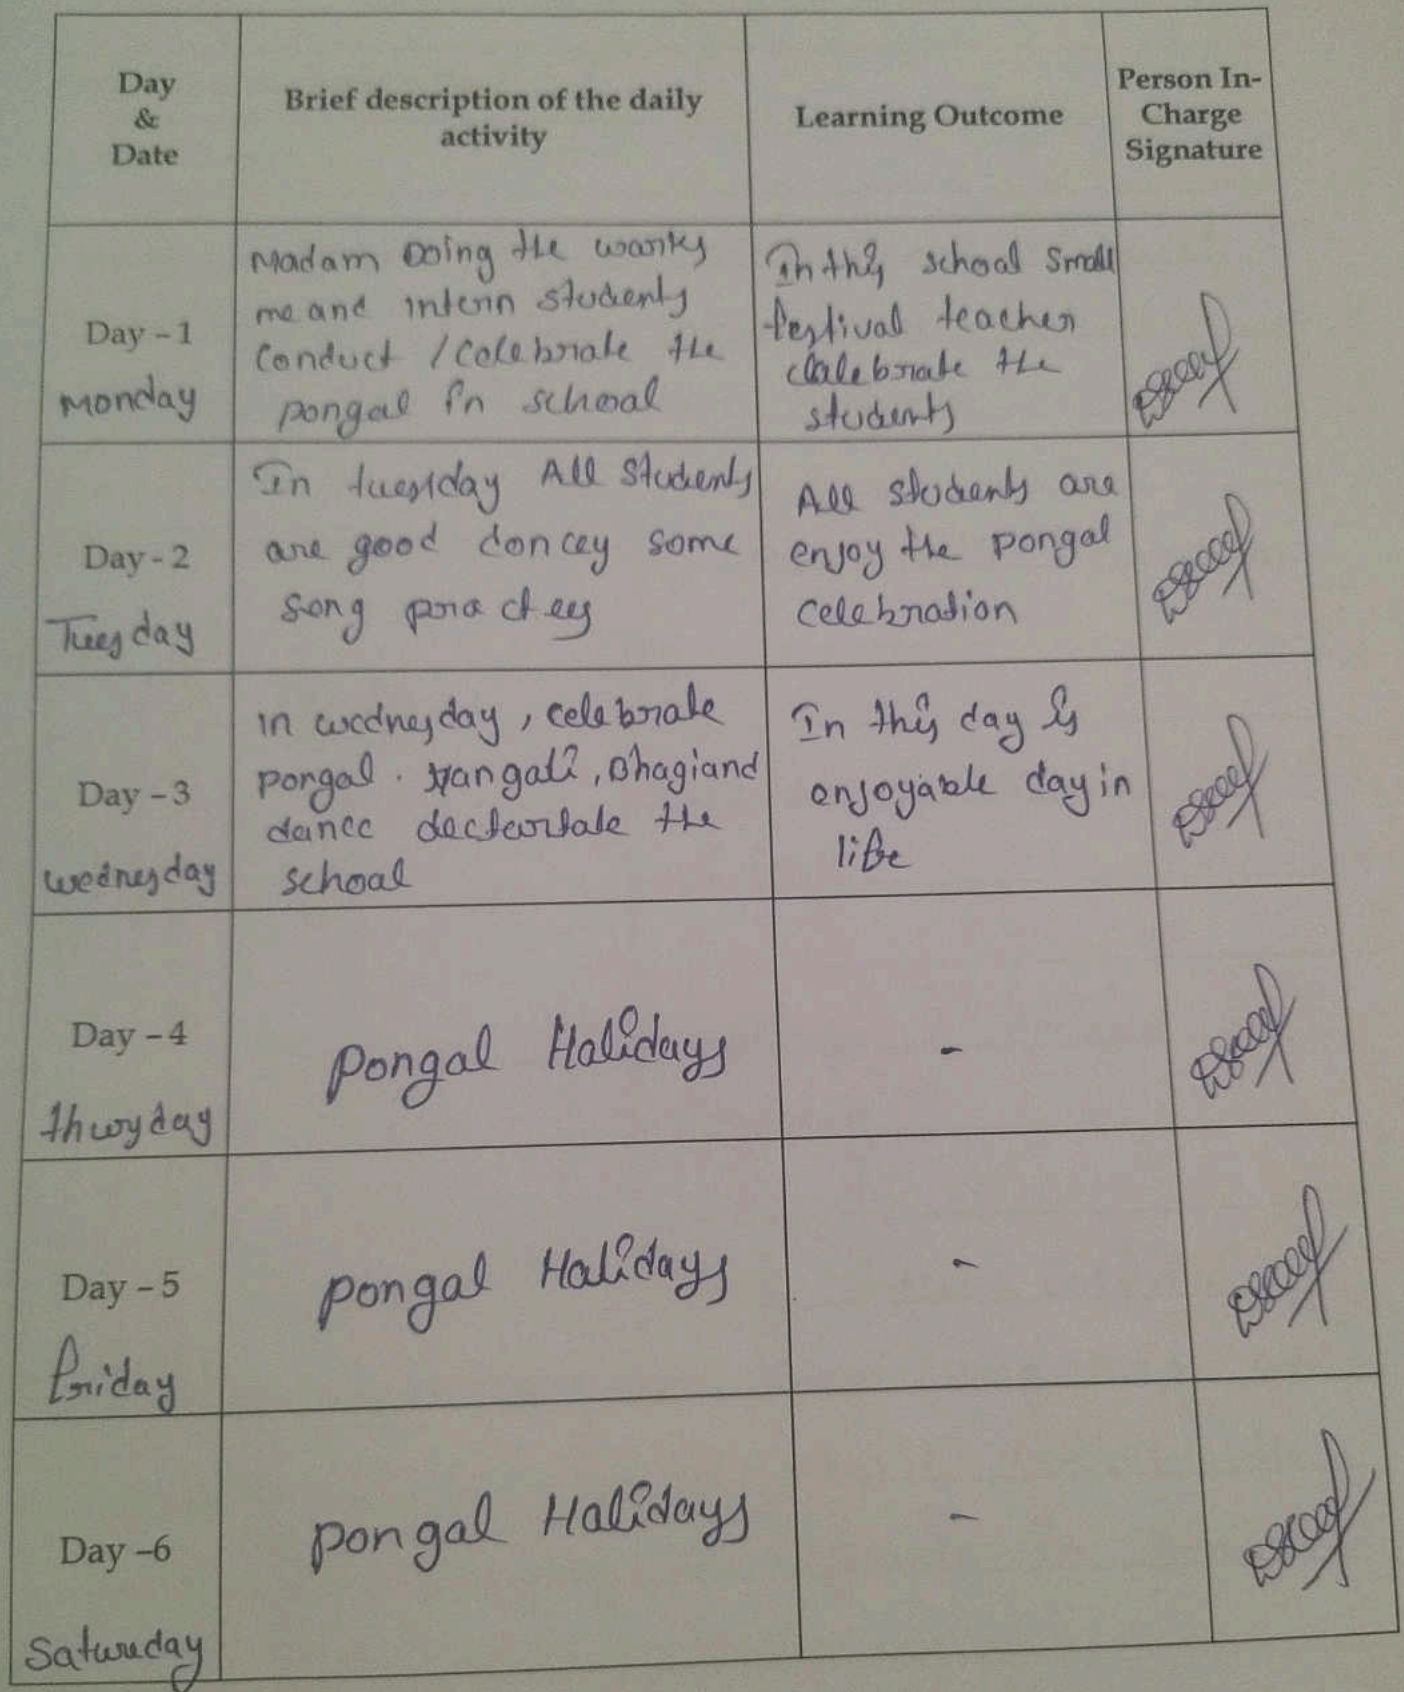 Day
&
Date
Brief description of the daily
activity
Learning Outcome
Person In-
Charge
Signature
Day - 1
Monday
Madam Doing the works
me and intern students
conduct / celebrate the
pongal in school
In this school small
festival teacher
celebrate the
students
Day - 2
Tuesday
In tuesday All students
are good dancey some
song practies
All students are
enjoy the pongal
celebration
Day - 3
wednesday
in wednesday, celebrate
pongal. Rangali, Bhagi and
dance the
school
In this day is
enjoyable day in
life
Day - 4
thursday
pongal Halidays
-
Day - 5
friday
pongal Halidays
-
Day -6
Satureday
pongal Halidays
-